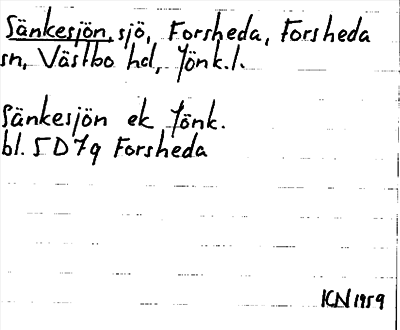 Sänkesjön, sjö, Forsheda, Forsheda
sn, Västbo hd, Jönk.l.
Sänkesjön ek Jönk.
bl. 5D7g Forsheda
KN 1959